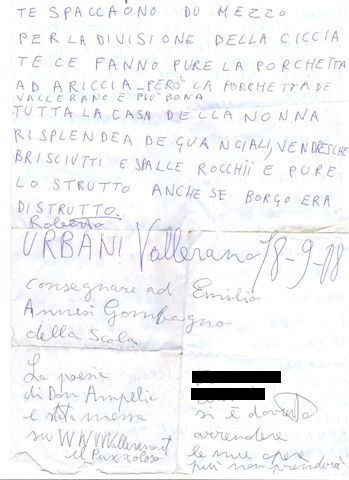 TE SPACCAONO DU MEZZO
PER LA DIVISIONE DELLA CICCIA
TE CE FANNO PURE LA PORCHETTA
AD ARICCIA - PERÒ LA PORCHETTA DE
VALLERANO È PIÙ BONA
TUTTA LA CASA DELLA NONNA
RISPLENDEA DE GUANCIALI, VENDRESCHE
BRISCIUTTI E SPALLE ROCCHII E PURE
LO STRUTTO ANCHE SE BORGO ERA
DISTRUTTO.
Roberto
URBANI Vallerano 18-9-08
consegnare ad Emilio
Annesi Compagno
della Scola
La poesia
di Don Ampelio
è stata messa
su WWWVallerano.it
il Puzzoloso
si è dovuto
arrendere
le mie opere
più non prenderà